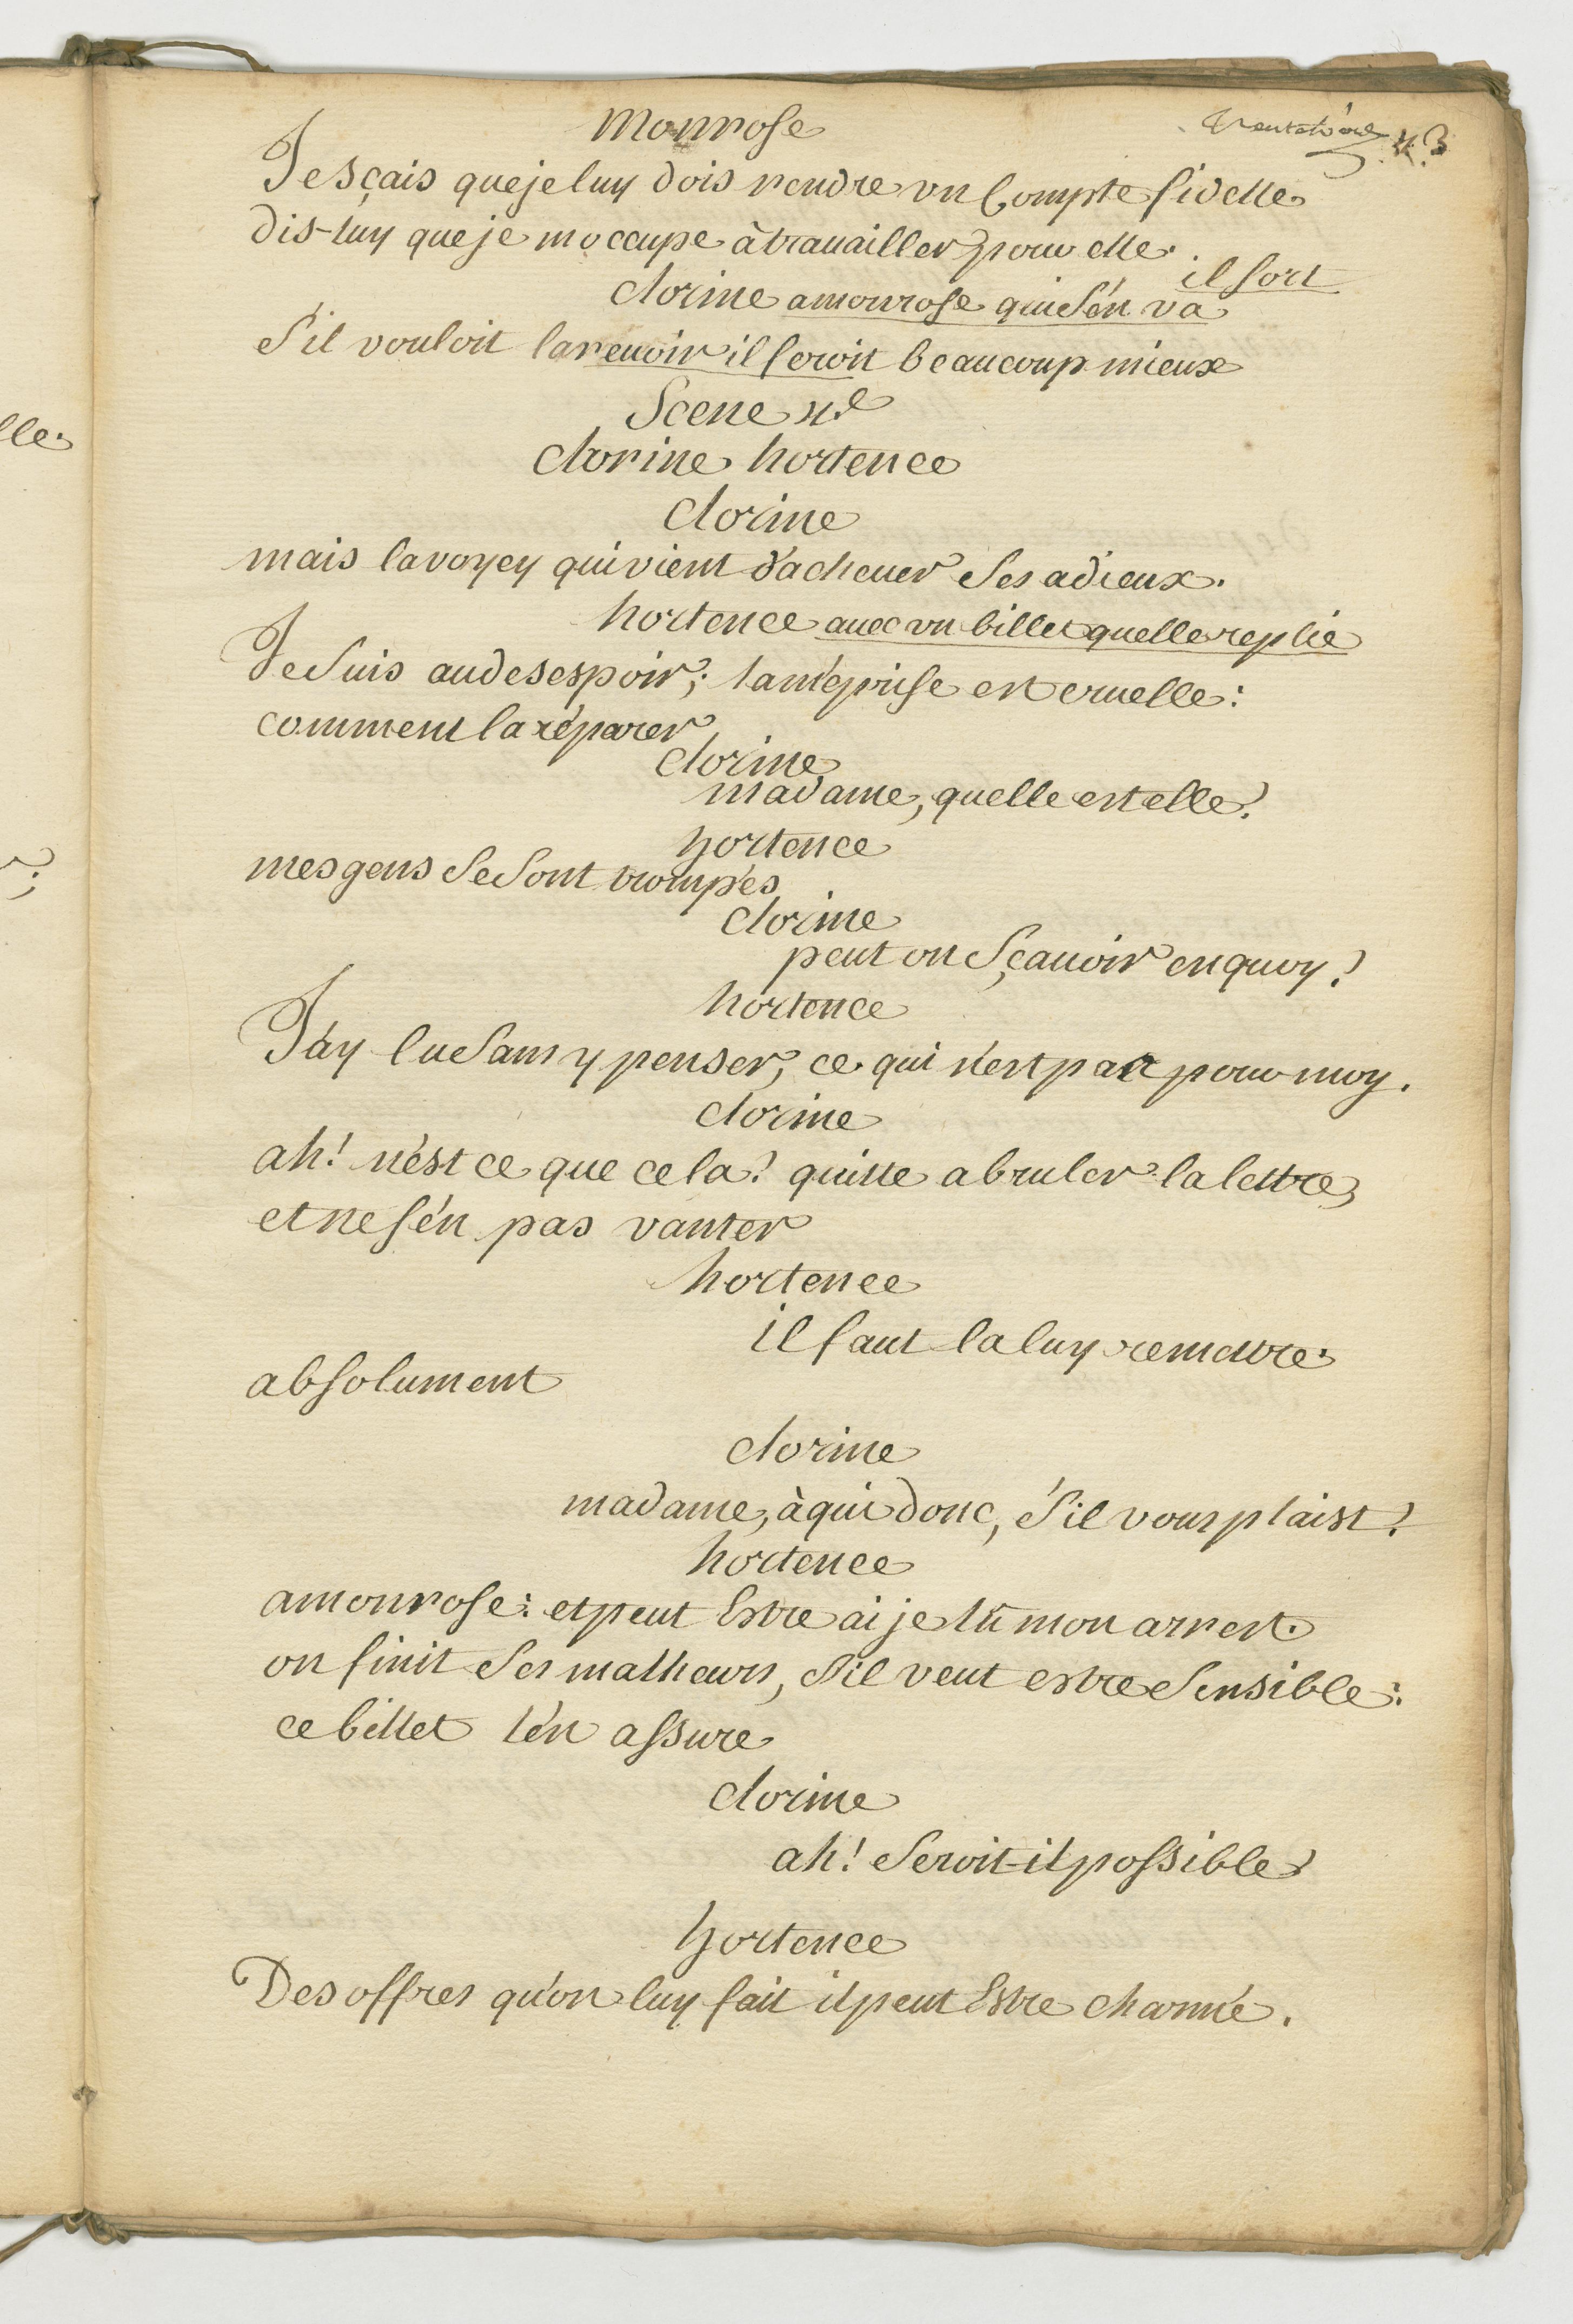 monrose
Je sçais que je luy dois rendre vn Compte fidelle
dis-luy que je moccupe à trauailler pour elle.
il sort
clorine a monrose qui s'én va
s'il vouloit la reuoir il feroit beaucoup mieux
Scene
clorine hortence
clorine
mais la voycy qui vient d'acheuer ses adieux.
hortence auec vn billet quelle replie
Je suis au desespoir; la méprise est cruelle:
comment la réparer
clorine
madame, quelle est elle?
hortence
mes gens se sont trompés
clorine
peut on sçauoir en quoy?
hortence
J'ay lu sans y penser, ce qui n'est pas pour moy.
clorine
ah! n'est ce que cela? quitte a bruler la lettre,
et ne s'én pas vanter
hortence
il faut la luy remettre.
absolument
clorine
madame, à qui donc, s'il vous plaist?
hortence
a monrose: et peut Estre ai je lû mon arrest.
on finit ses malheurs, s'il veut estre sensible:
ce billet l'én assure
clorine
ah! seroit-il possible?
hortence
Des offres qu'on luy fait il peut Estre charmé.
lle.